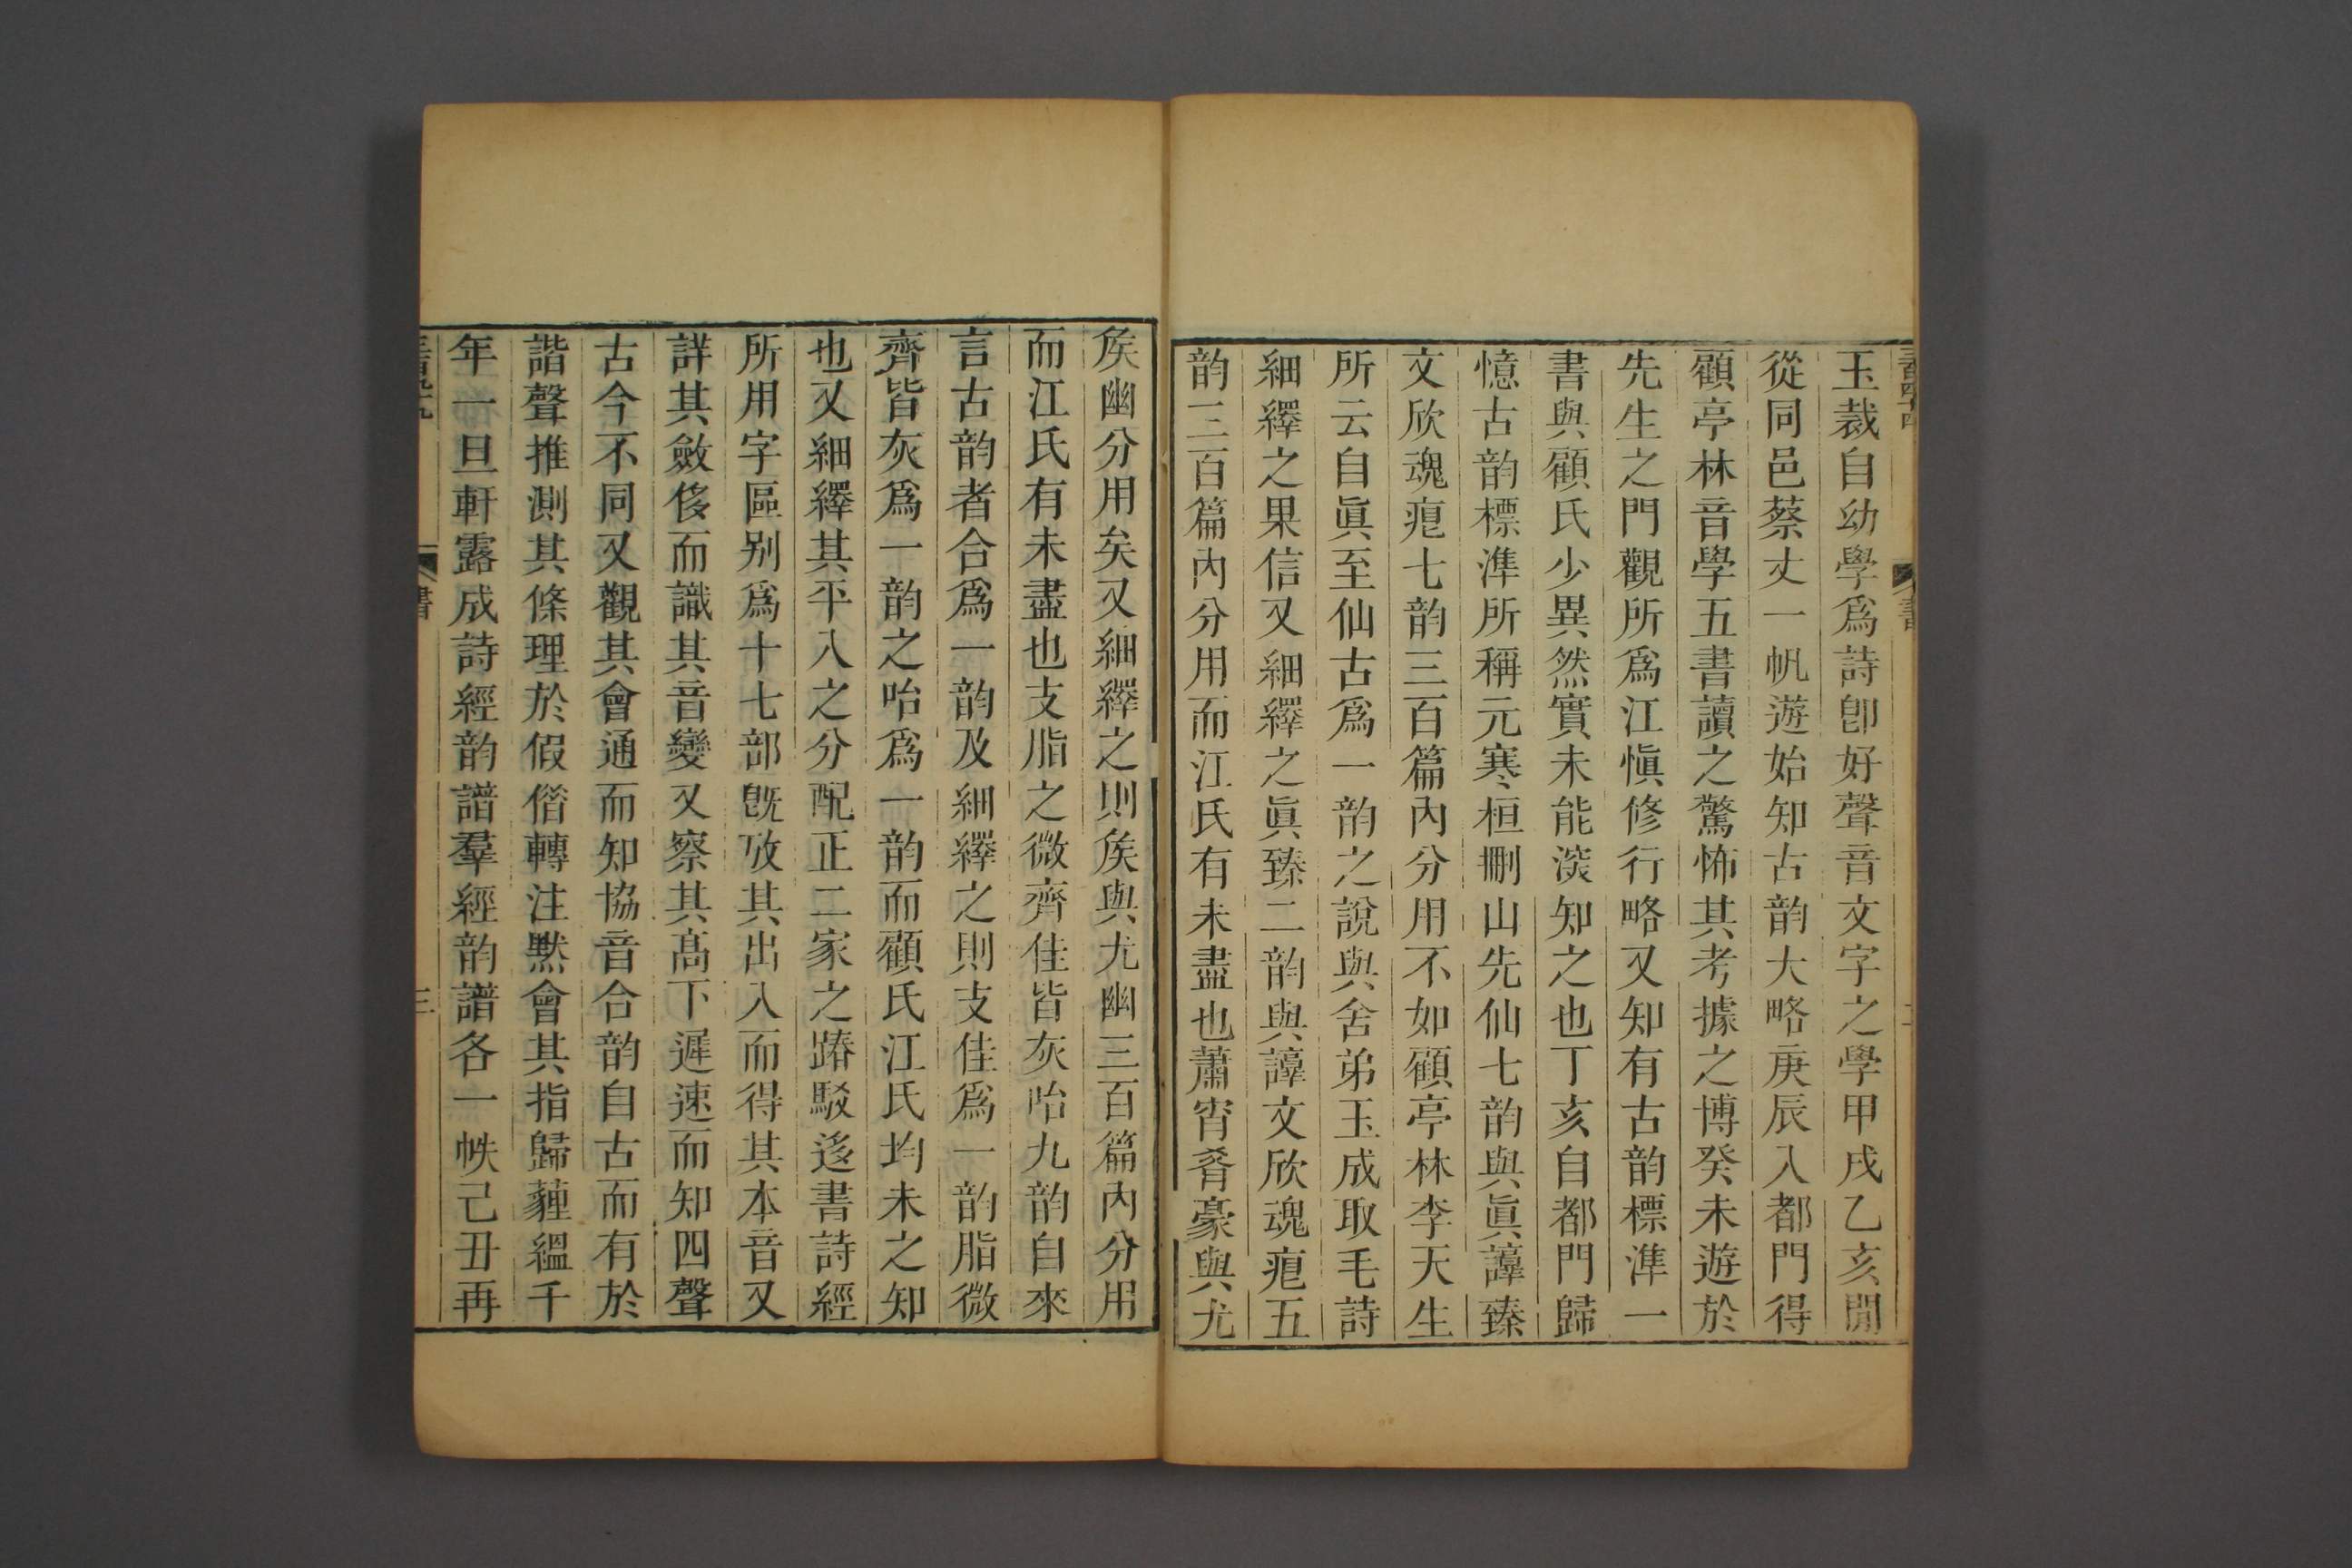 玉裁自幼學爲詩卽好聲音文字之學甲戌乙亥閒
從同邑蔡丈一帆遊始知古韵大略庚辰入都門得
顧亭林音學五書讀之驚怖其考據之博癸未遊於
先生之門觀所爲江愼修行略又知有古韵標準一
書與顧氏少異然實未能湥知之也丁亥自都門歸
憶古韵標準所稱元寒桓刪山先仙七韵與眞諄臻
文欣魂痕七韵三百篇內分用不如顧亭林李天生
所云自眞至仙古爲一韵之說與舍弟玉成取毛詩
細繹之果信又細繹之眞臻二韵與諄文欣魂痕五
韵三百篇內分用而江氏有未盡也蕭宵肴豪與尤
矦幽分用矣又細繹之則矦與尤幽三百篇內分用
而江氏有未盡也支脂之微齊佳皆灰咍九韵自來
言古韵者合爲一韵及細繹之則支佳爲一韵脂微
齊皆灰爲一韵之咍爲一韵而顧氏江氏均未之知
也又細繹其平入之分配正二家之踳駁迻書詩經
所用字區別爲十七部旣攷其出入而得其本音又
詳其斂侈而識其音變又察其高下遲速而知四聲
古今不同又觀其會通而知協音合韵自古而有於
諧聲推測其條理於假偺轉注默會其指歸薶縕千
年一旦軒露成詩經韵譜羣經韵譜各一帙己丑再
書
三